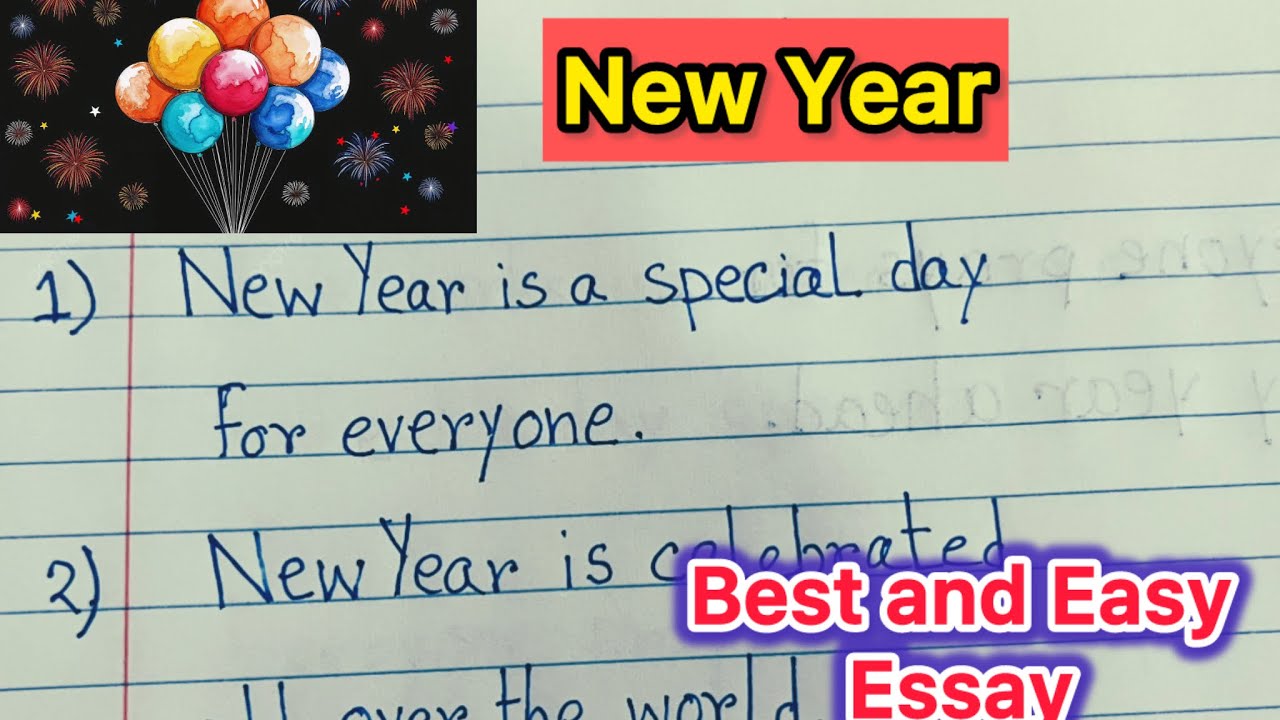 New Year
1) New Year is a special day
for everyone.
2) New Year is celebrated
all over the world.
Best and Easy
Essay